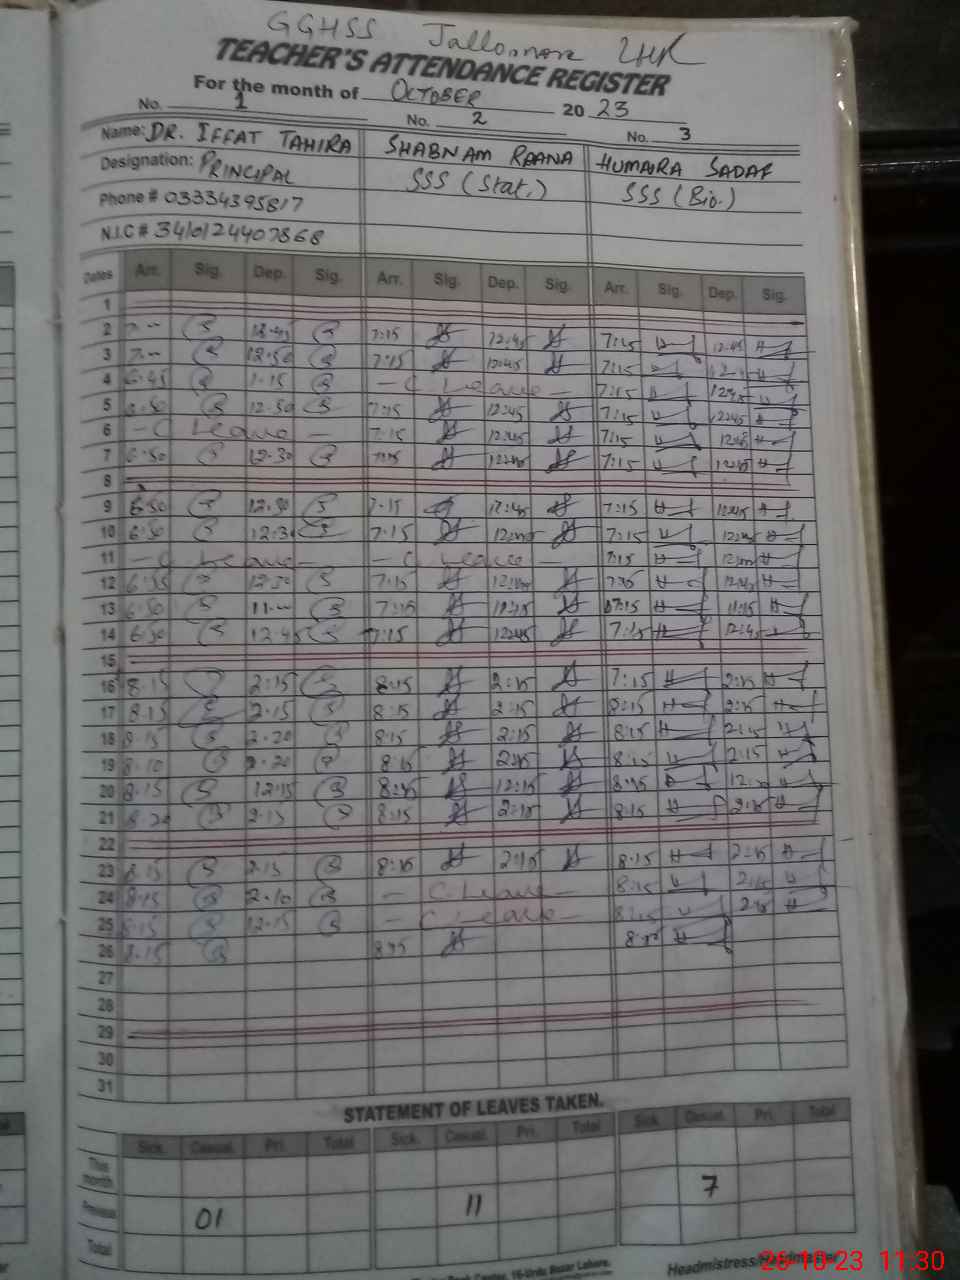 GGHSS Jallo more LHR
TEACHER'S ATTENDANCE REGISTER
For the month of OCTOBER 2023
No. 1 No. 2 No. 3
Name: DR. IFFAT TAHIRA SHABNAM RAANA HUMAIRA SADAF
Designation: PRINCIPAL SSS (Stat.) SSS (Bio.)
Phone # 03334395817
N.I.C # 3410124407868
Dates Arr. Sig. Dep. Sig. Arr. Sig. Dep. Sig. Arr. Sig. Dep. Sig.
1
2 7:15 12:45 7:15 12:45
3 12:50 7:15 12:45 7:15
4 6:45 1:15 - C Leave - 7:15 12:45
5 6:50 12:50 7:15 12:45 7:15 12:45
6 - C Leave - 7:15 12:45 7:15 12:45
7 6:50 12:30 7:15 12:45 7:15 12:45
8
9 6:50 12:30 7:15 12:45 7:15 12:45
10 6:50 12:30 7:15 12:45 7:15 12:45
11 - C Leave - - C Leave - 7:15 12:45
12 12:30 7:15 12:45 7:15 12:45
13 6:50 11:-- 7:15 11:15 7:15 11:15
14 6:50 12:45 7:15 12:45 7:15 12:45
15
16 8:15 2:15 8:15 2:15 7:15 2:15
17 8:15 2:15 8:15 2:15 8:15 2:15
18 8:15 2:20 8:15 2:15 8:15 2:15
19 8:10 2:20 8:15 2:15 8:15 2:15
20 8:15 12:15 8:15 12:15 8:15
21 8:20 2:15 8:15 2:15 8:15 2:15
22
23 8:15 2:15 8:15 2:15 8:15 2:15
24 8:15 2:10 - C. Leave - 8:15 2:15
25 8:15 12:15 - C Leave - 8:15 2:15
26 8:15 8:15 8:15
27
28
29
30
31
STATEMENT OF LEAVES TAKEN.
Sick. Casual. Pri. Total Sick. Casual. Pri. Total Sick. Casual. Pri. Total
This month
Previous 01 11 7
Total
16-Urdu Bazar Lahore.
Headmistress/Headmaster
26-10-23 11:30